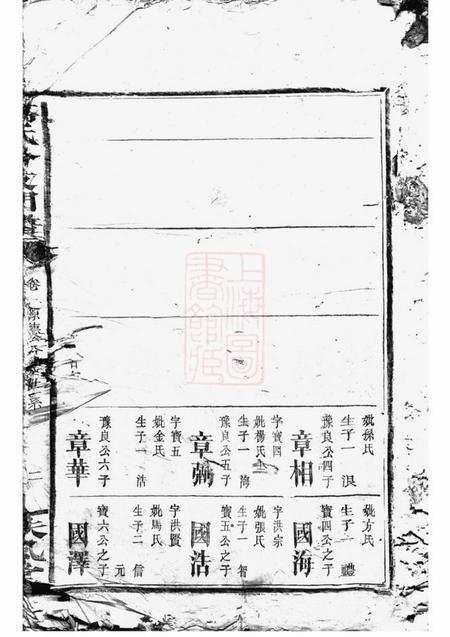 妣孫氏
生子一
豫良公四子
章相
字寶四
妣楊氏
生子一 海
豫良公五子
章彌
字寶五
妣金氏
生子一 浩
豫良公六子
章華
妣方氏
生子一 禮
寶四公之子
國海
字洪宗
妣張氏
生子一 智
寶五公之子
國浩
字洪賢
妣馬氏
生子二 信 元
寶六公之子
國澤
上海圖
書館藏
卷